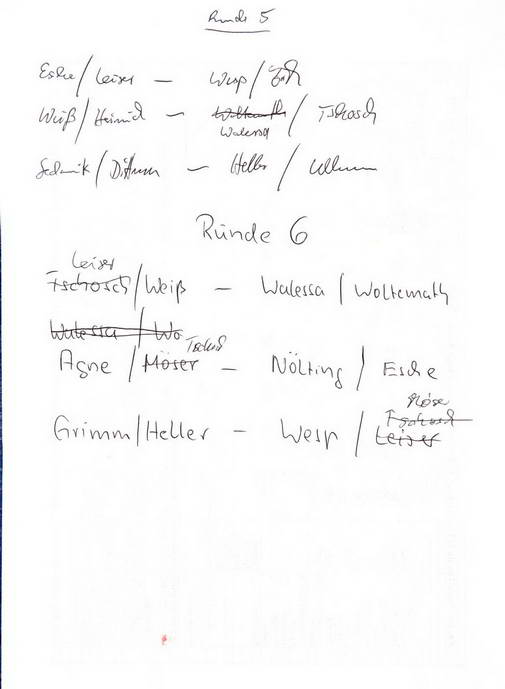 Runde 5
Esche / Leiser — Wesp /
Weiß / Heinrich — Woltemath / Tschosch
Walessa
Sedmik / Dittmann — Heller / Ullmann
Runde 6
Leiser
Tschosch / Weiß — Walessa / Woltemath
Walessa / Wo
Tschosch
Agne / Möser — Nölting / Esche
Möser
Tschosch
Grimm / Heller — Wesp / Leiser